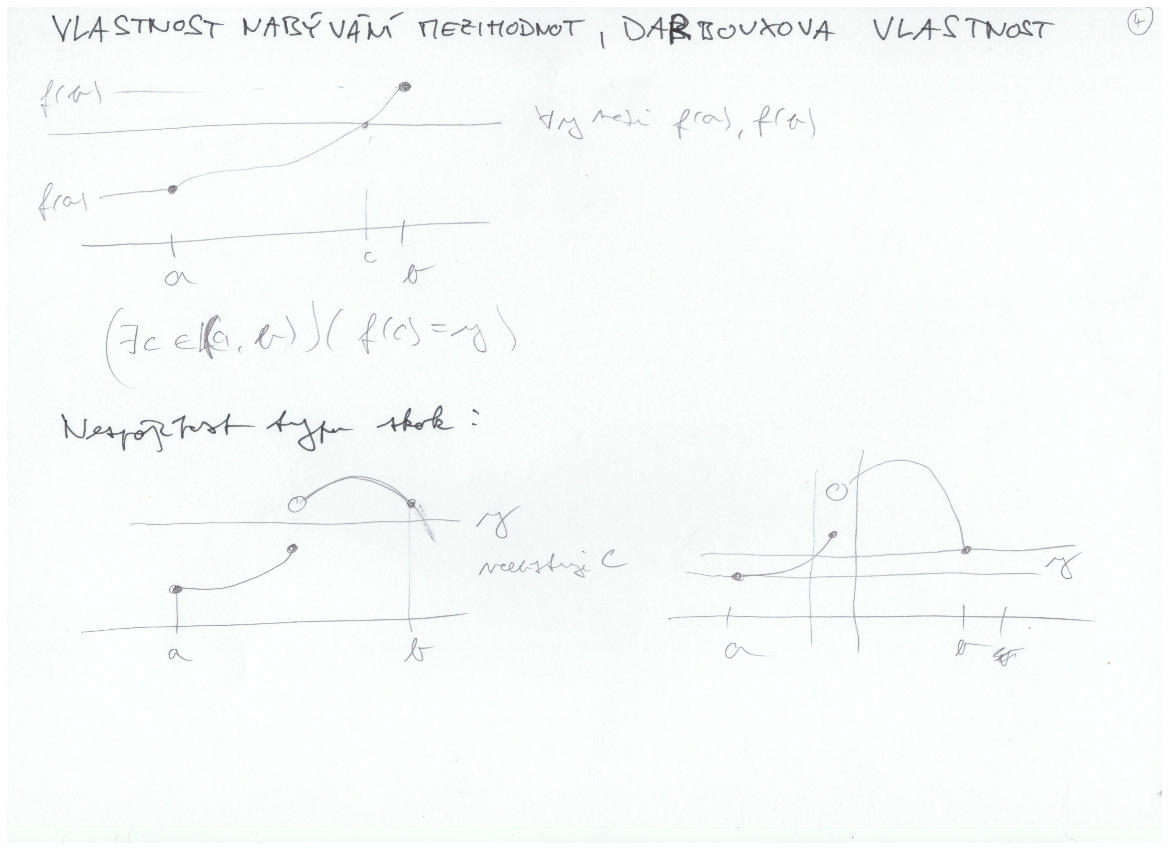 VLASTNOST NABÝVÁNÍ MEZIHODNOT, DARBOUXOVA VLASTNOST
4
f(b)
∀y mezi f(a), f(b)
f(a)
c
a b
(∃c ∈ (a, b))(f(c) = y)
Nespojitost typu skok:
y
neexistuje c
y
a b
a b